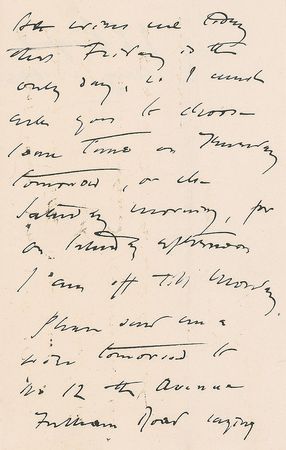 he wires me today
that Friday is the
only day, so I must
ask you to choose
some time on Thursday
tomorrow, or the
Saturday morning, for
on Saturday afternoon
I am off till Monday.
Please send me a
wire tomorrow to
No 12 the Avenue
Fulham Road saying